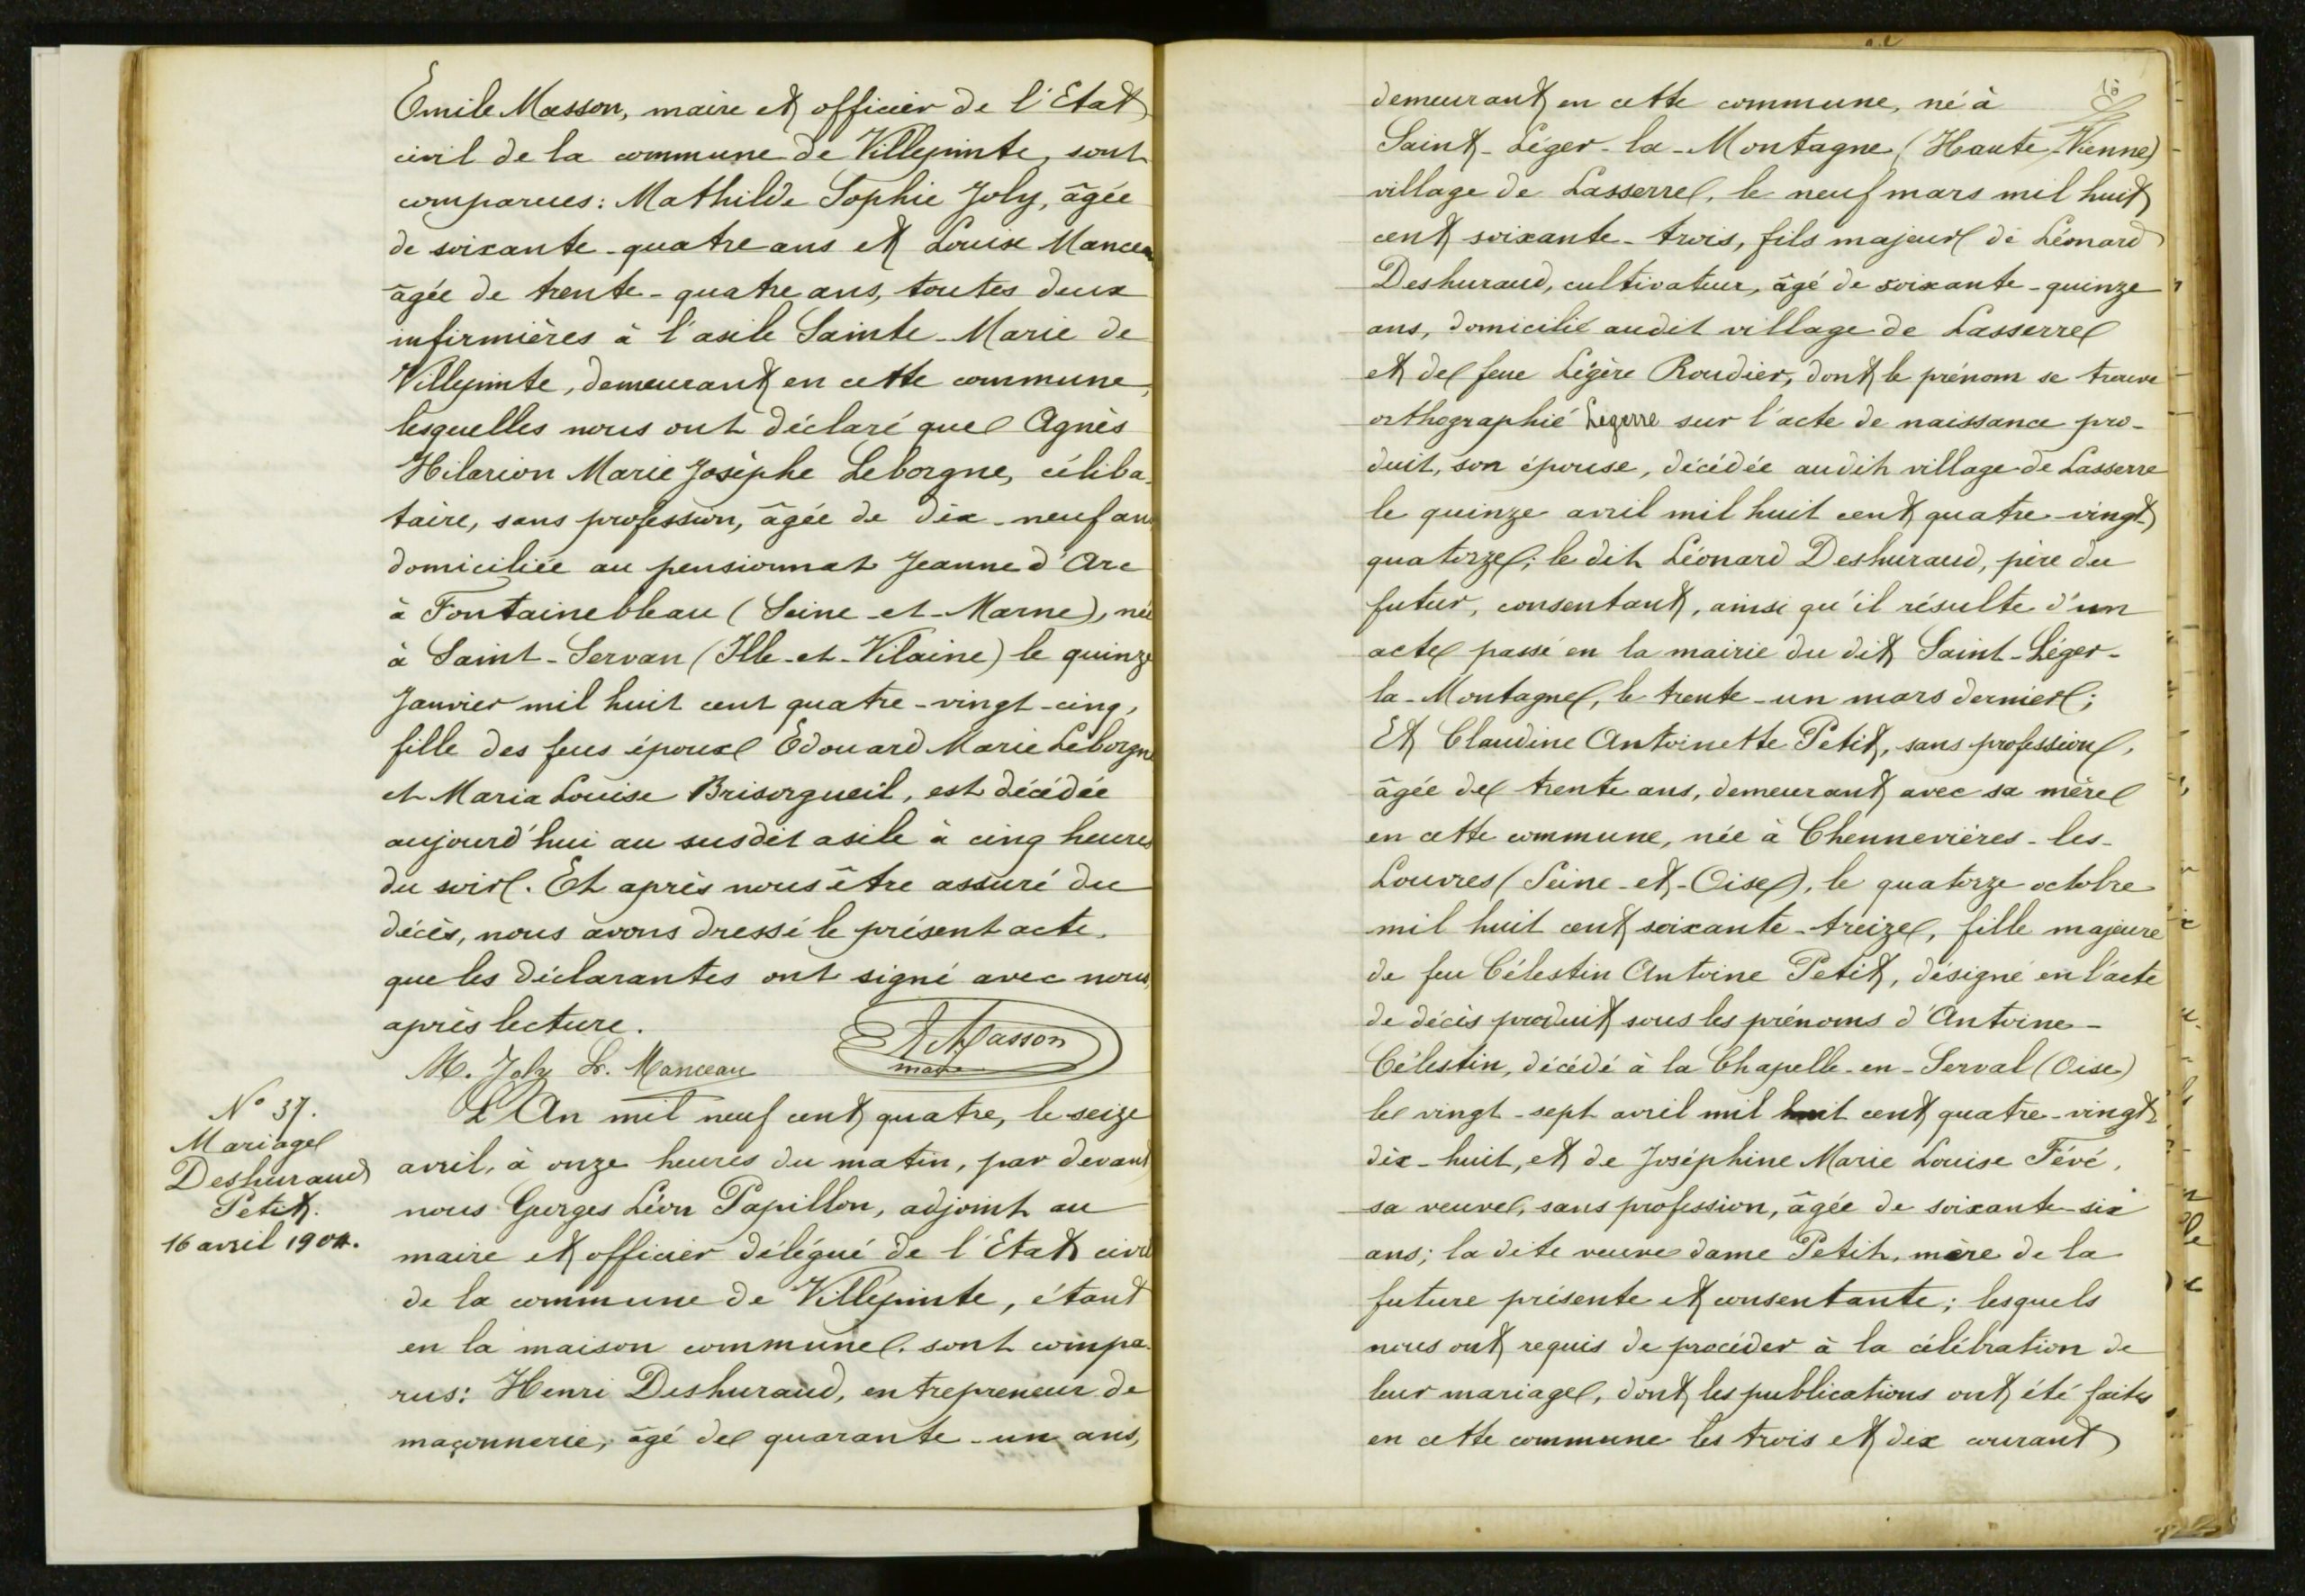 Emile Masson, maire et officier de l'Etat
civil de la commune de Villepinte, sont
comparues: Mathilde Sophie Joly, âgée
de soixante-quatre ans et Louise Manceau
âgée de trente-quatre ans, toutes deux
infirmières à l'asile Sainte-Marie de
Villepinte, demeurant en cette commune,
lesquelles nous ont déclaré que Agnès
Hilarion Marie Josèphe Leborgne, céliba-
taire, sans profession, âgée de dix-neuf ans
domiciliée au pensionnat Jeanne d'Arc
à Fontainebleau (Seine-et-Marne), née
à Saint-Servan (Ille-et-Vilaine) le quinze
Janvier mil huit cent quatre-vingt-cinq,
fille des feus époux Edouard Marie Leborgne
et Maria Louise Brisorgueil, est décédée
aujourd'hui au susdit asile à cinq heures
du soir. Et après nous être assuré du
décès, nous avons dressé le présent acte,
que les déclarantes ont signé avec nous,
après lecture.
M. Joly L. Manceau
Masson
maire
N° 37.
Mariage
Deshuraud
Petit.
16 avril 1904.
L'An mil neuf cent quatre, le seize
avril, à onze heures du matin, par devant
nous Georges Léon Papillon, adjoint au
maire et officier délégué de l'Etat civil
de la commune de Villepinte, étant
en la maison commune. sont compa-
rus: Henri Deshuraud, entrepreneur de
maçonnerie, âgé de quarante-un ans,
demeurant en cette commune, né à
Saint-Léger-la-Montagne (Haute-Vienne)
village de Lasserre, le neuf mars mil huit
cent soixante-trois, fils majeur de Léonard
Deshuraud, cultivateur, âgé de soixante-quinze
ans, domicilié audit village de Lasserre
et de feue Légère Roudier, dont le prénom se trouve
orthographié Legerre sur l'acte de naissance pro-
duit, son épouse, décédée audit village de Lasserre
le quinze avril mil huit cent quatre-vingt
quatorze; le dit Léonard Deshuraud, père du
futur, consentant, ainsi qu'il résulte d'un
acte passé en la mairie du dit Saint-Léger-
la-Montagne, le trente-un mars dernier;
Et Claudine Antoinette Petit, sans profession,
âgée de trente ans, demeurant avec sa mère
en cette commune, née à Chennevières-les-
Louvres (Seine-et-Oise), le quatorze octobre
mil huit cent soixante-treize, fille majeure
de feu Célestin Antoine Petit, désigné en l'acte
de décès produit sous les prénoms d'Antoine-
Célestin, décédé à la Chapelle-en-Serval (Oise)
le vingt-sept avril mil huit cent quatre-vingt-
dix-huit, et de Joséphine Marie Louise Févé,
sa veuve, sans profession, âgée de soixante-six
ans; la dite veuve dame Petit, mère de la
future présente et consentante; lesquels
nous ont requis de procéder à la célébration de
leur mariage, dont les publications ont été faites
en cette commune les trois et dix courant